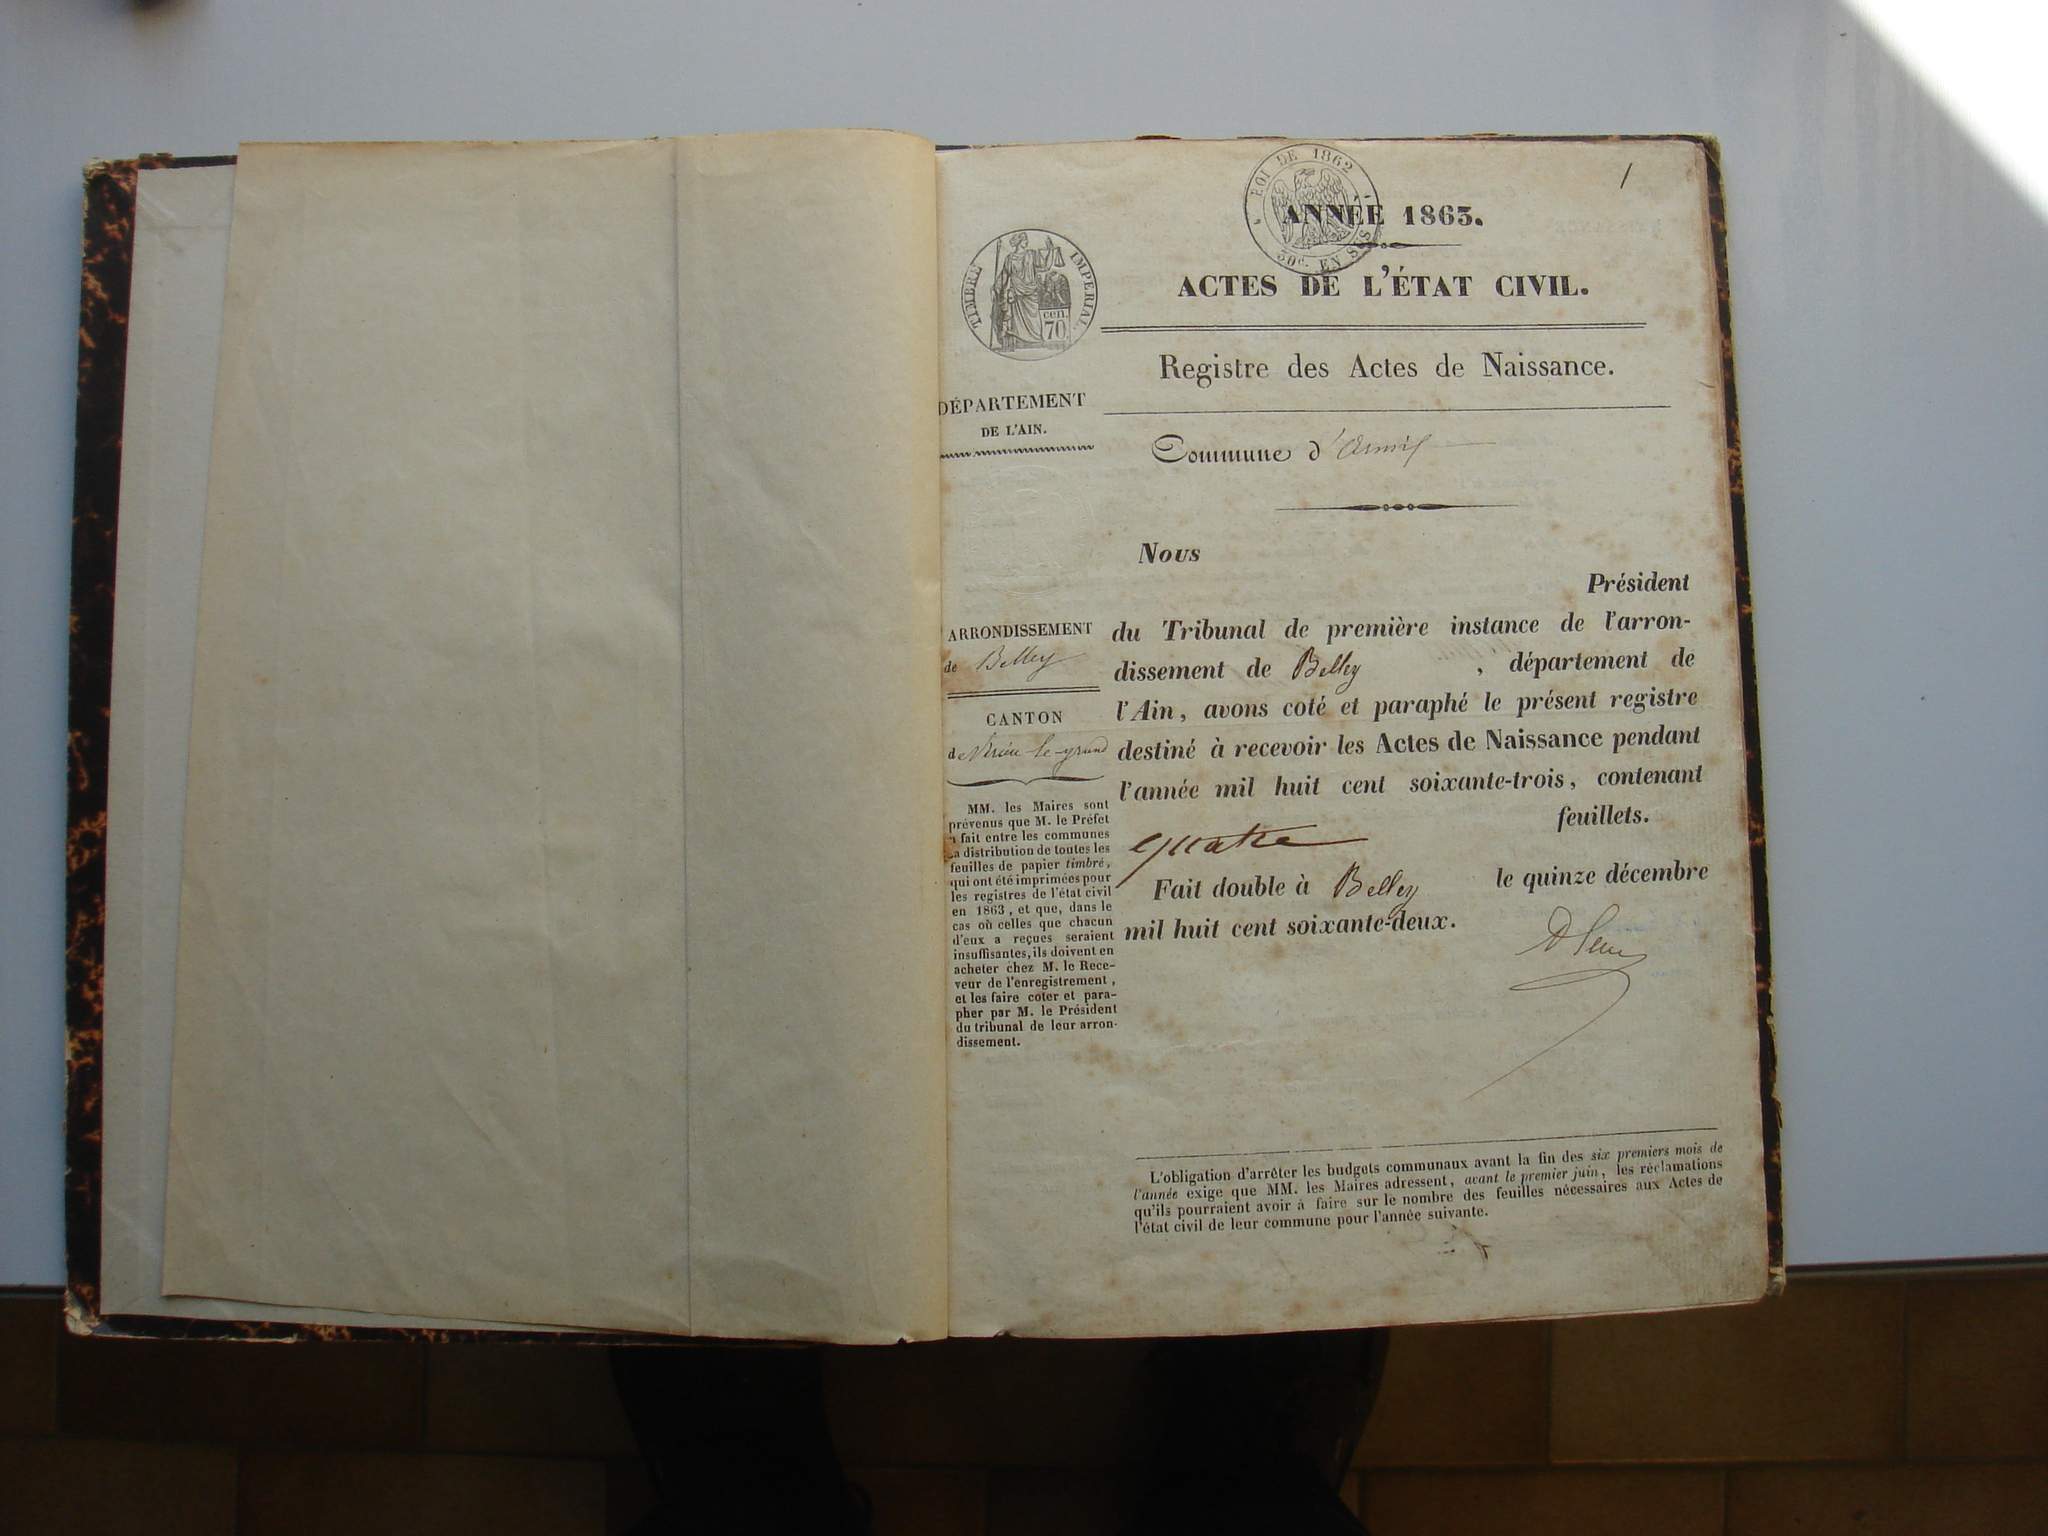 1
LOI DE 1862
30c. EN SUS
ANNÉE 1863.
TIMBRE IMPERIAL
cen.
70.
ACTES DE L'ÉTAT CIVIL.
Registre des Actes de Naissance.
DÉPARTEMENT
DE L'AIN.
Commune d'
Nous
Président
du Tribunal de première instance de l'arron-
dissement de Belley , département de
l'Ain, avons coté et paraphé le présent registre
destiné à recevoir les Actes de Naissance pendant
l'année mil huit cent soixante-trois, contenant
quatre feuillets.
Fait double à Belley le quinze décembre
mil huit cent soixante-deux.
ARRONDISSEMENT
de Belley
CANTON
de Virieu-le-grand
MM. les Maires sont
prévenus que M. le Préfet
a fait entre les communes
la distribution de toutes les
feuilles de papier timbré,
qui ont été imprimées pour
les registres de l'état civil
en 1863, et que, dans le
cas où celles que chacun
d'eux a reçues seraient
insuffisantes, ils doivent en
acheter chez M. le Rece-
veur de l'enregistrement,
et les faire coter et para-
pher par M. le Président
du tribunal de leur arron-
dissement.
L'obligation d'arrêter les budgets communaux avant la fin des six premiers mois de
l'année exige que MM. les Maires adressent, avant le premier juin, les réclamations
qu'ils pourraient avoir à faire sur le nombre des feuilles nécessaires aux Actes de
l'état civil de leur commune pour l'année suivante.